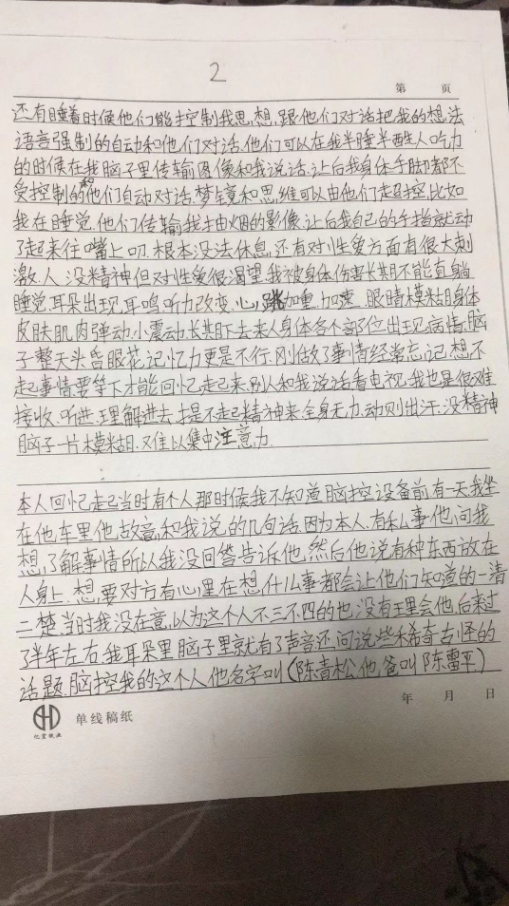 2
第 页
还有睡着时候他们能控制我思,想,跟他们对话把我的想,法
语言强制的自动和他们对话.他们可以在我半睡半醒人吃力
的时候在我脑子里传输图像和我说话.让后我身体手脚都不
受控制的和他们自动对话.梦境和思维可以由他们走超控.比如
我在睡觉.他们传输我抽烟的影像.让后我自己的手挡就动
了起来往嘴上叨.根本没法休息.还有对性爱方面有很大刺
激.人.没精神但对性爱很渴望.我被身体伤害长期不能直躺
睡觉.耳朵出现耳鸣.听力改变.心跳加重.加速.眼睛模粘胡身体
皮肤肌肉弹动.小震动.长其期下去来人身体各个部位出现病情.脑
子整天头昏眼花.记忆力更是不行.刚做了事情经常忘记.想不
起事情.要等下才能回忆起来.别人和我说话看电视.我也是很难
接收.听进.理解进去.提不起精神来.全身无力.动则出汗.没精神
脑子一片模糊.难以集中注意力.
本人回忆起当时有个人那时候我不知道脑控设备前有一天我坐
在他车里他故意和我说的几句话.因为本人.有私事他问我
想,了解事情所以我没回答告诉他.然后他说有种东西放在
人身上.想要对方有心里在想,什么事都会让他们知道的一清
二楚.当时我没在意.以为这个人不三不四的也没有理会他.后来过
了半年左右.我耳朵里脑子里就有了声音还问说些稀奇古怪的
话题.脑控我的这个人他名字叫(陈青松.他爸叫陈雷平)
年 月 日
单线稿纸